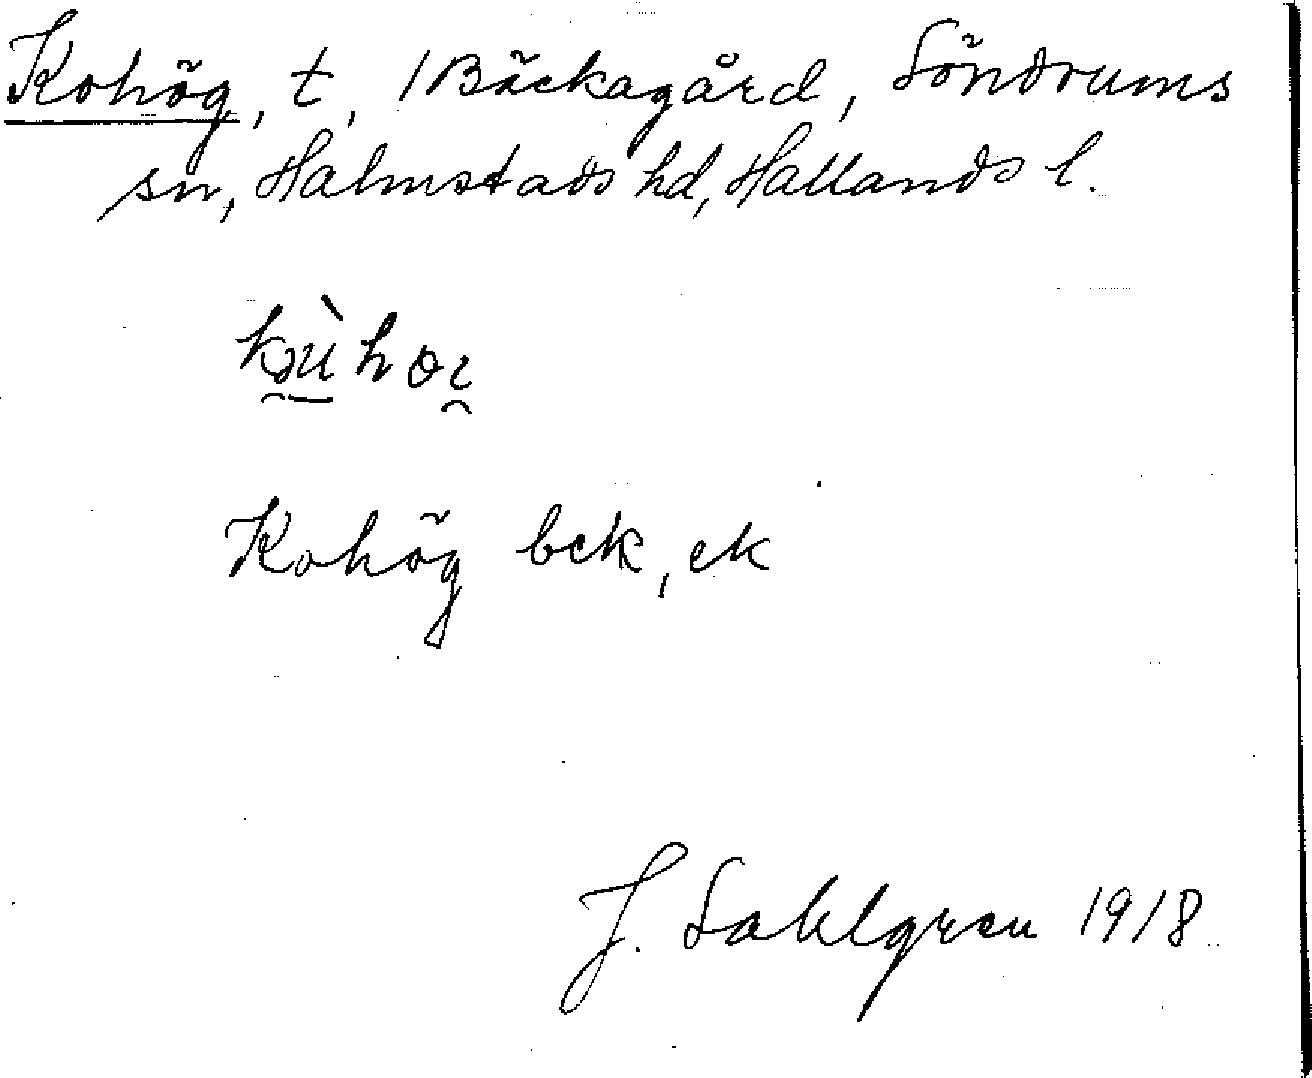 Kohög, t, /Bäckagård, Söndrums
sn, Halmstads hd, Hallands l.
Kohög bek, ek
J. Sahlgren 1918